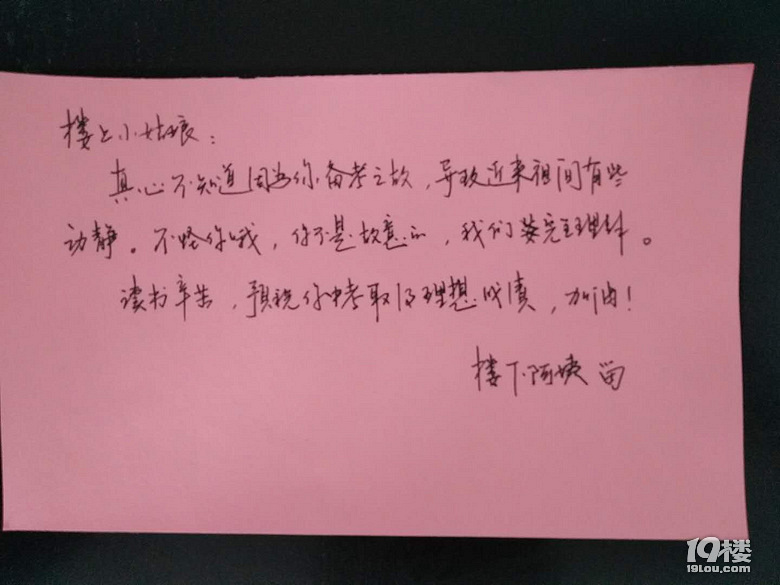 楼上小姑娘：
真心不知道因为你备考之故，导致近来夜间有些
动静。不怪你哦，你不是故意的，我们大家完全理解。
读书辛苦，预祝你中考取得理想成绩，加油！
楼下阿姨 留
19楼
19lou.com